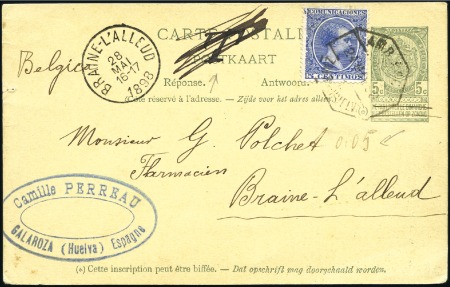 CARTE POSTALE
POSTKAART
Réponse. Antwoord.
(Côté réservé à l'adresse. — Zijde voor het adres
COMUNICACIONES
5 CENTIMOS
5c 5c
BRAINE-L'ALLEUD
28
MAI
16-17
1898
Belgica
Monsieur G. Polchet 0.05
Farmacien
Braine-L'alleud
Camille PERREAU
GALAROZA (Huelva) Espagne
(*) Cette inscription peut être biffée. — Dat opschrift mag doorschaald worden.